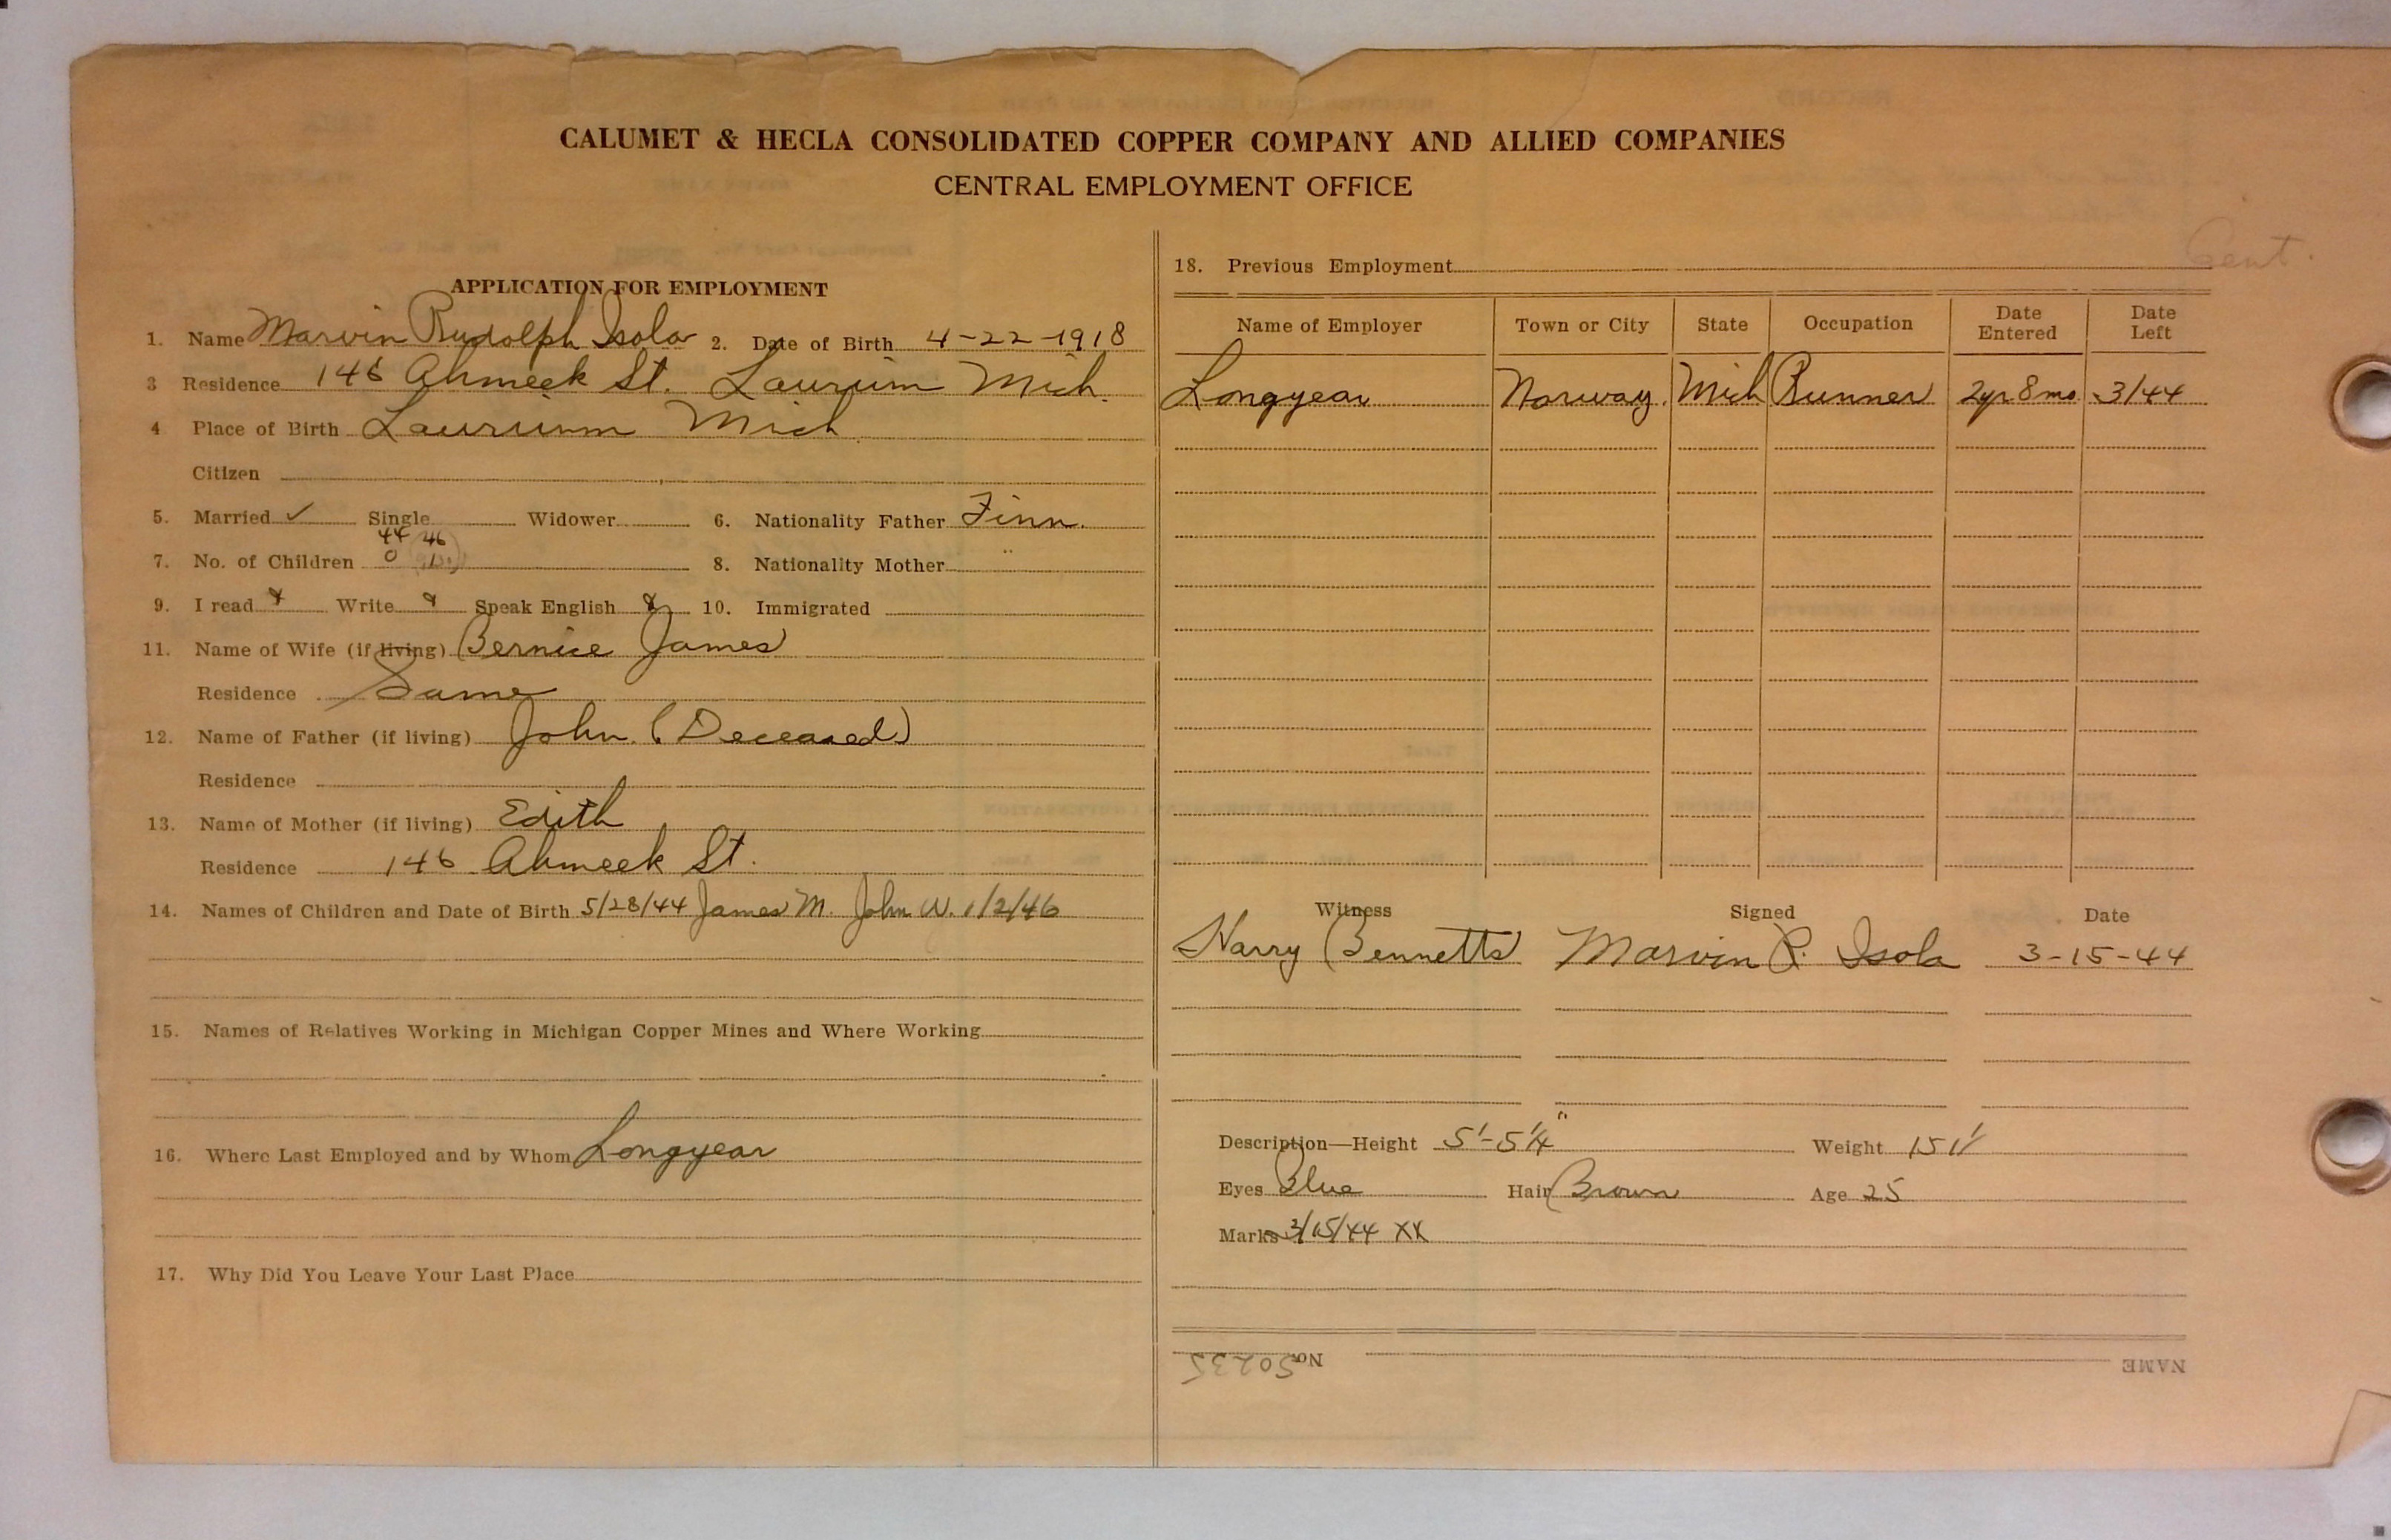 CALUMET & HECLA CONSOLIDATED COPPER COMPANY AND ALLIED COMPANIES
CENTRAL EMPLOYMENT OFFICE
APPLICATION FOR EMPLOYMENT
1. Name Marvin Rudolph Isola 2. Date of Birth 4-22-1918
3 Residence 146 Ahmeek St. Laurium Mich.
4 Place of Birth Laurium Mich.
Citizen
5. Married ✓ Single Widower 6. Nationality Father Finn.
44 46
7. No. of Children 0 8. Nationality Mother "
9. I read Write Speak English 10. Immigrated
11. Name of Wife (if living) Bernice James
Residence Same
12. Name of Father (if living) John (Deceased)
Residence
13. Name of Mother (if living) Edith
Residence 146 Ahmeek St.
14. Names of Children and Date of Birth 5/28/44 James M. John W. 1/2/46
15. Names of Relatives Working in Michigan Copper Mines and Where Working
16. Where Last Employed and by Whom Longyear
17. Why Did You Leave Your Last Place
Cent.
18. Previous Employment
Name of Employer Town or City State Occupation Date Entered Date Left
Longyear Norway. Mich Runner 2yr 8mo 3/44
Witness Signed Date
Harry Bennetts Marvin R. Isola 3-15-44
Description—Height 5'-5¼" Weight 151
Eyes Blue Hair Brown Age 25
Marks 3/15/44 XX
NAME No. 50235